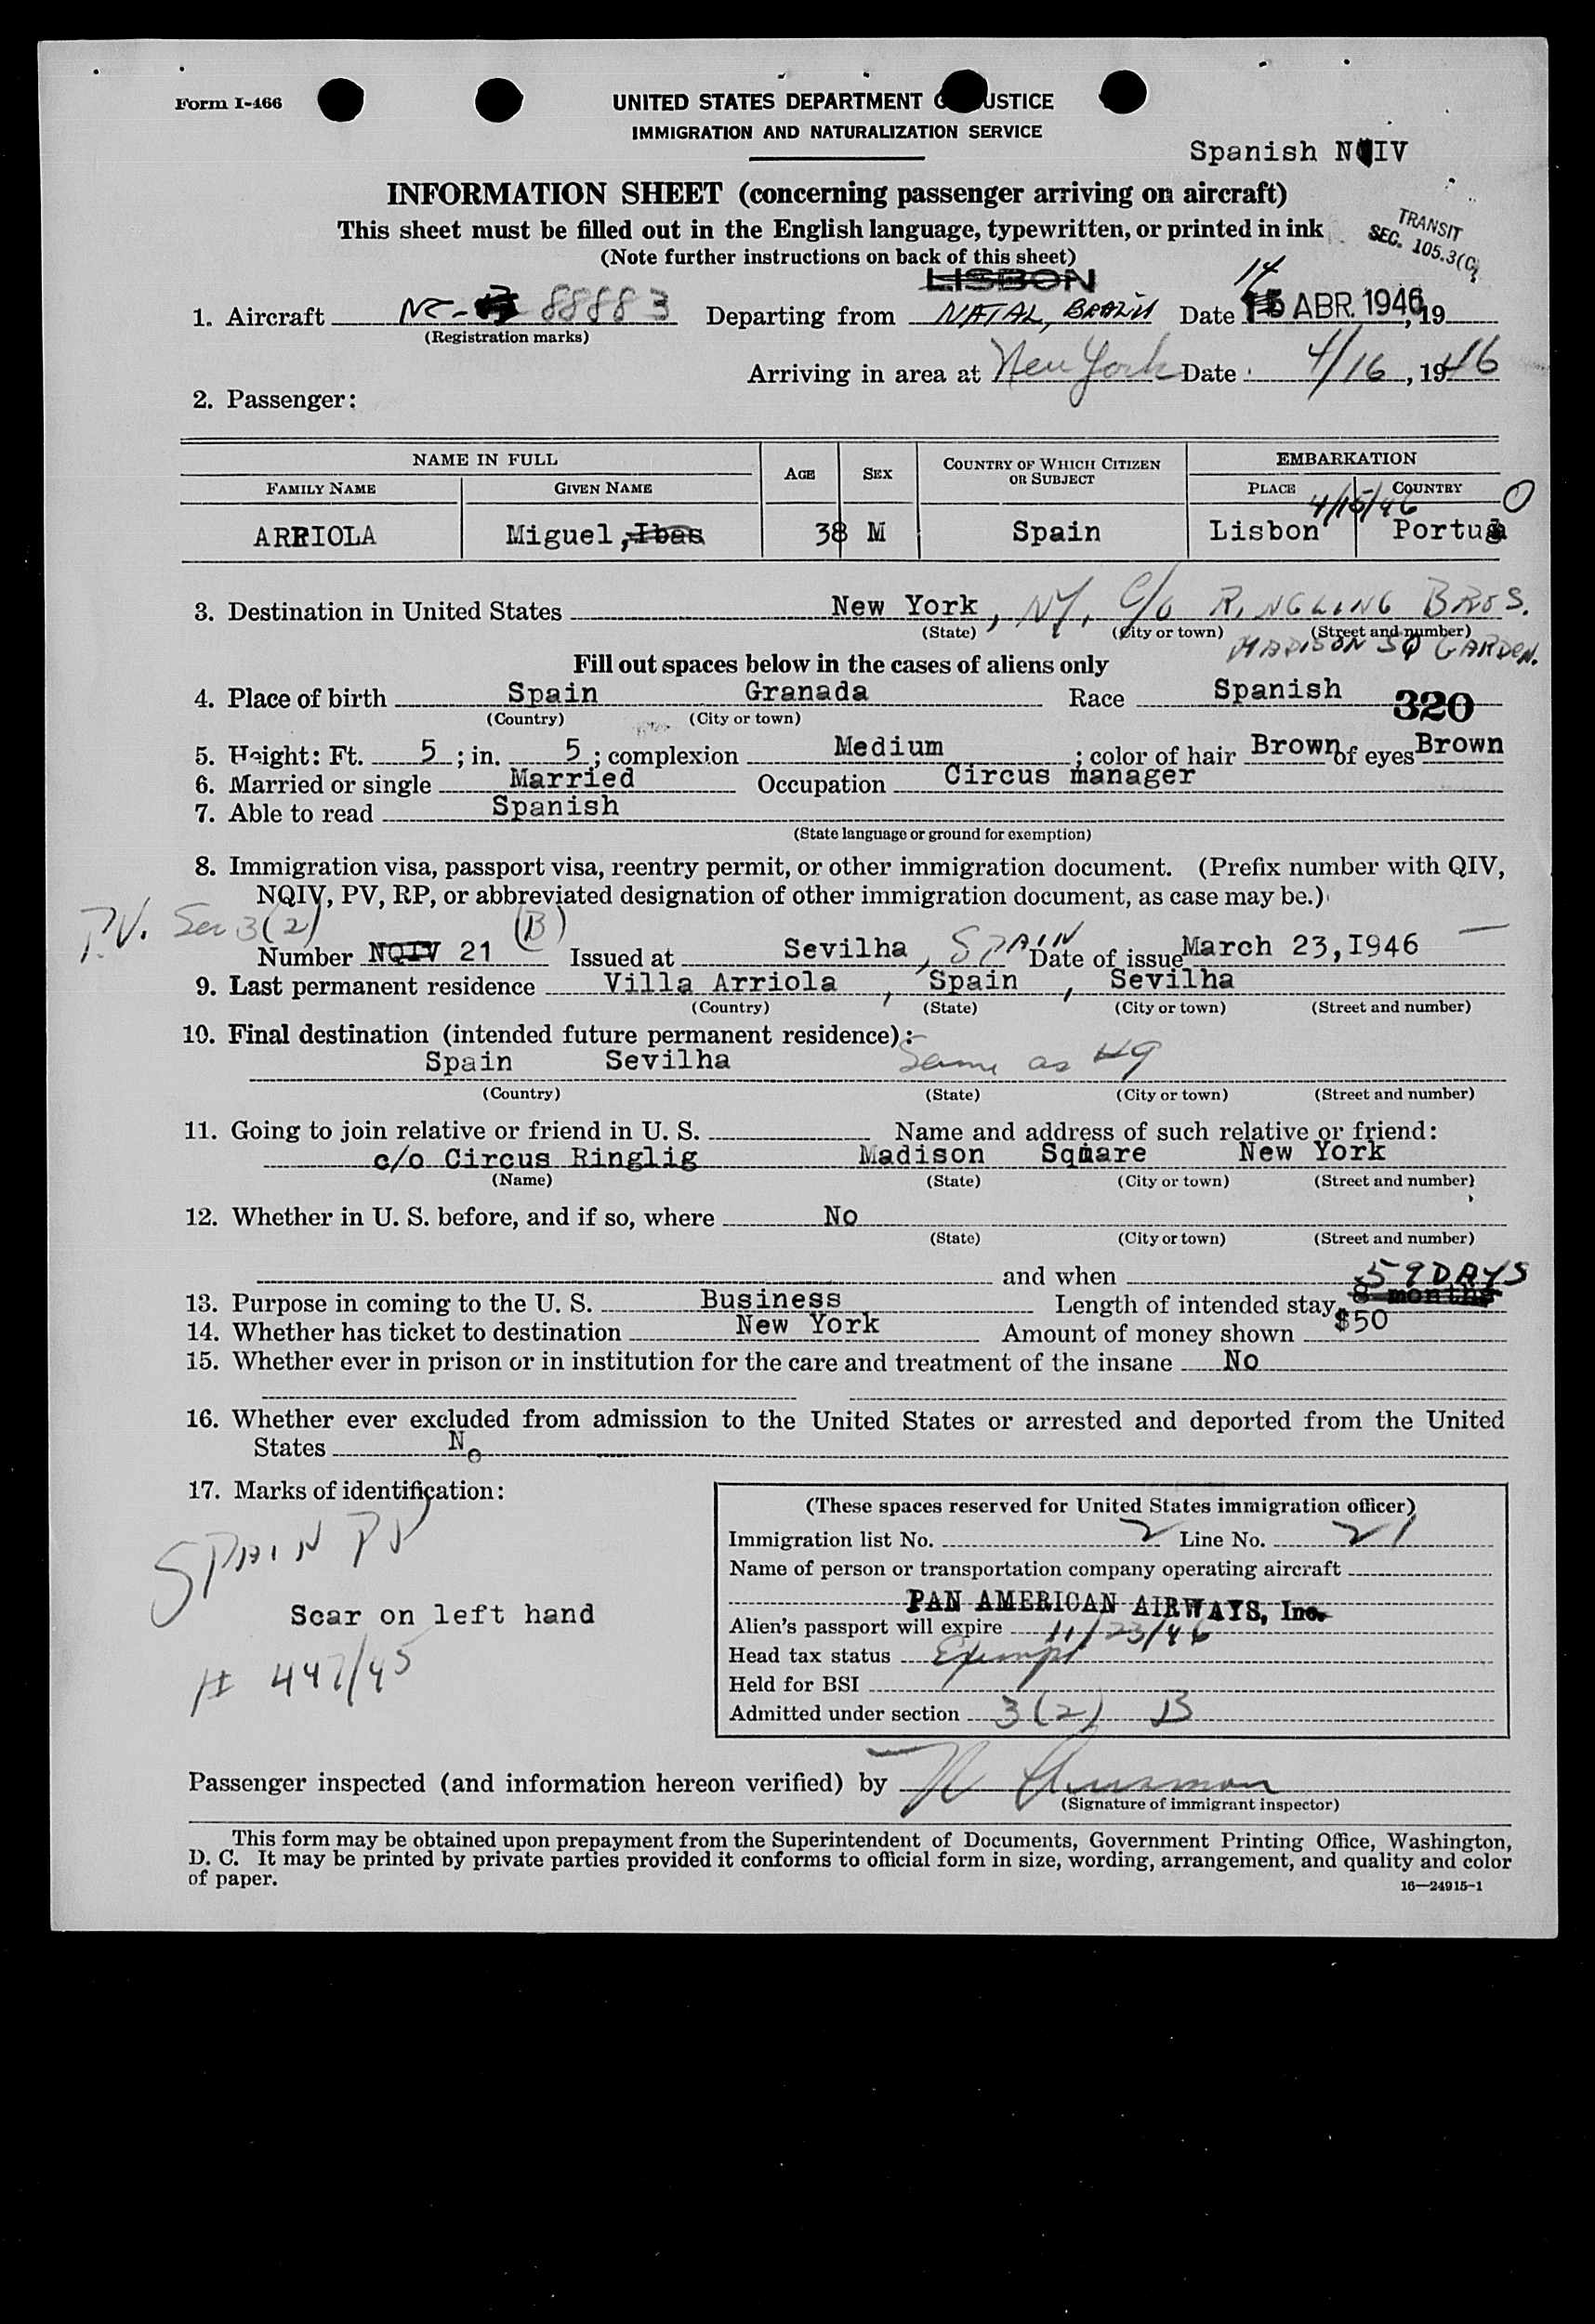 Form I-466
UNITED STATES DEPARTMENT OF JUSTICE
IMMIGRATION AND NATURALIZATION SERVICE
Spanish NQIV
INFORMATION SHEET (concerning passenger arriving on aircraft)
This sheet must be filled out in the English language, typewritten, or printed in ink
(Note further instructions on back of this sheet)
TRANSIT
SEC. 105.3(C)
LISBON
14
1. Aircraft NC- 88883 Departing from NATAL, BRAZIL Date 15 ABR. 1946, 19
(Registration marks)
Arriving in area at New York Date 4/16, 1946
2. Passenger:
NAME IN FULL AGE SEX COUNTRY OF WHICH CITIZEN OR SUBJECT EMBARKATION
FAMILY NAME GIVEN NAME PLACE COUNTRY
4/15/46
ARRIOLA Miguel, Ibas 38 M Spain Lisbon Portug
3. Destination in United States New York, NY, C/O RINGLING BROS.
(State) (City or town) (Street and number)
MADISON SQ GARDEN.
Fill out spaces below in the cases of aliens only
4. Place of birth Spain Granada Race Spanish 320
(Country) (City or town)
5. Height: Ft. 5; in. 5; complexion Medium; color of hair Brown of eyes Brown
6. Married or single Married Occupation Circus manager
7. Able to read Spanish
(State language or ground for exemption)
8. Immigration visa, passport visa, reentry permit, or other immigration document. (Prefix number with QIV,
NQIV, PV, RP, or abbreviated designation of other immigration document, as case may be.)
P.V. Sec 3(2) (B)
Number NQIV 21 Issued at Sevilha, SPAIN Date of issue March 23, I946
9. Last permanent residence Villa Arriola, Spain, Sevilha
(Country) (State) (City or town) (Street and number)
10. Final destination (intended future permanent residence):
Spain Sevilha Same as #9
(Country) (State) (City or town) (Street and number)
11. Going to join relative or friend in U. S. Name and address of such relative or friend:
c/o Circus Ringlig Madison Square New York
(Name) (State) (City or town) (Street and number)
12. Whether in U. S. before, and if so, where No
(State) (City or town) (Street and number)
and when
59 DAYS
13. Purpose in coming to the U. S. Business Length of intended stay 8 months
14. Whether has ticket to destination New York Amount of money shown $50
15. Whether ever in prison or in institution for the care and treatment of the insane No
16. Whether ever excluded from admission to the United States or arrested and deported from the United
States No
17. Marks of identification:
SPAIN PP
Scar on left hand
# 447/45
(These spaces reserved for United States immigration officer)
Immigration list No. 2 Line No. 21
Name of person or transportation company operating aircraft
PAN AMERICAN AIRWAYS, Inc.
Alien's passport will expire 11/23/46
Head tax status Exempt
Held for BSI
Admitted under section 3(2) B
Passenger inspected (and information hereon verified) by
(Signature of immigrant inspector)
This form may be obtained upon prepayment from the Superintendent of Documents, Government Printing Office, Washington,
D. C. It may be printed by private parties provided it conforms to official form in size, wording, arrangement, and quality and color
of paper.
16—24915-1